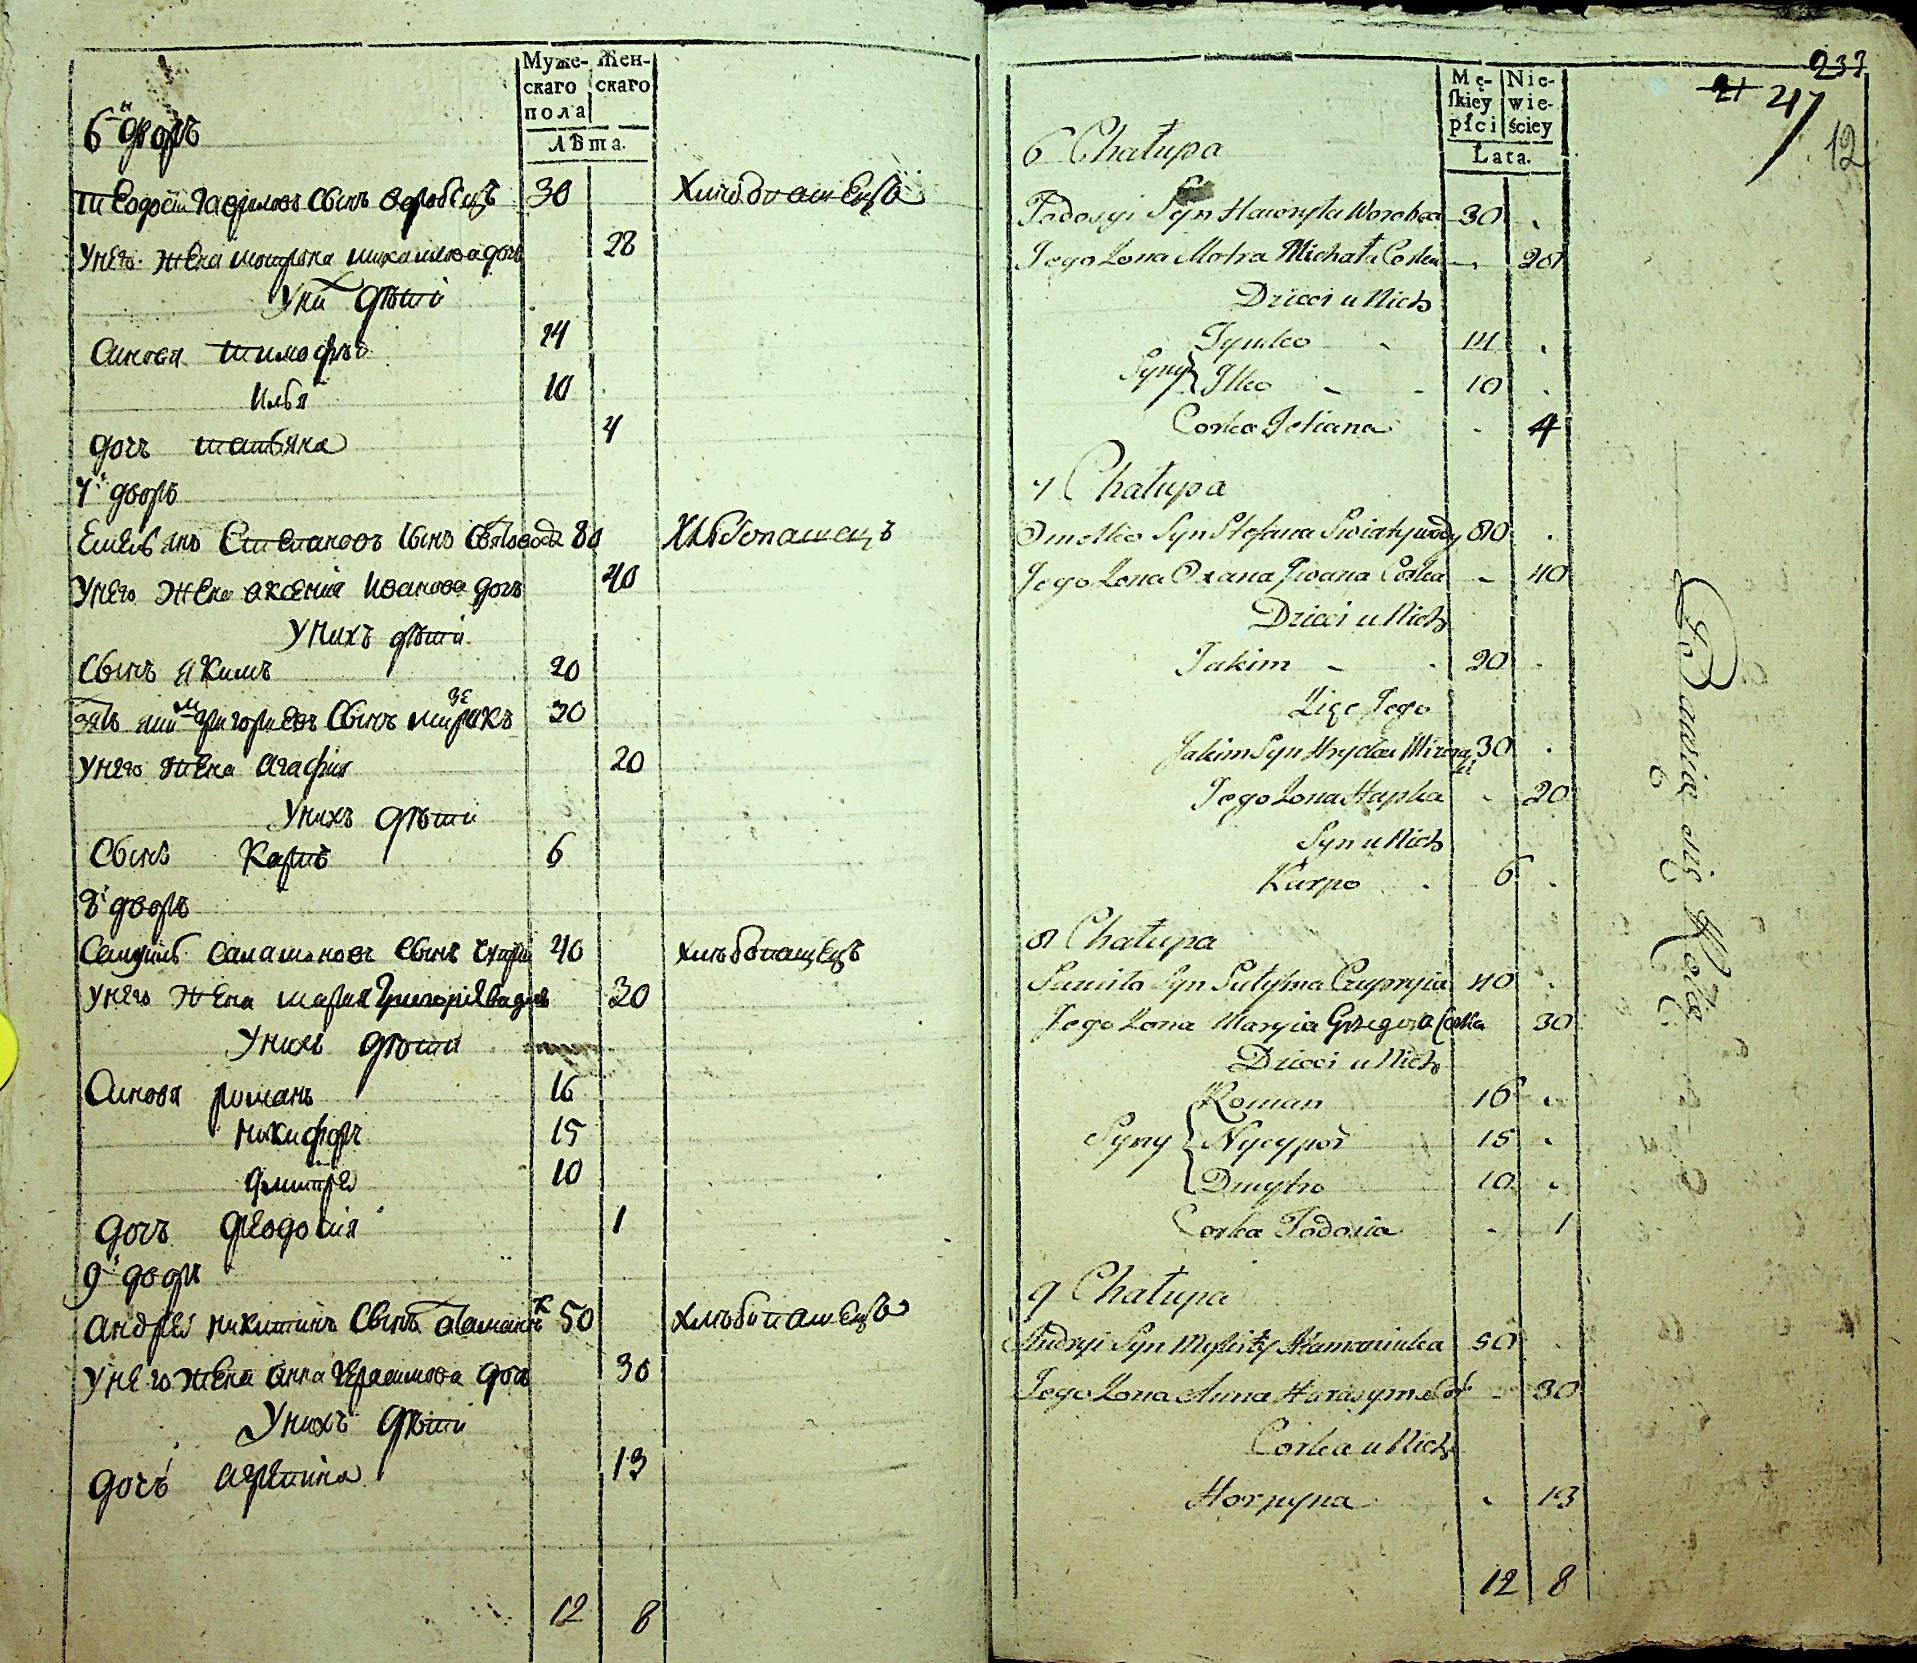 Муже-
скаго
пола
Жен-
скаго
лѣта.
6й дворъ
Ѳеодосій Гавриловъ сынъ Воробецъ 30 хлѣбопашецъ
У него жена Мотрона Михаилова дочь 28
У них дѣти
Синовя Тимофѣй 14
Илья 10
дочь Татьяна 4
7й дворъ
Емельянъ Степановъ сынъ 80 хлѣбопашецъ
У него жена Аксенія Иванова дочь 40
У нихъ дѣти
Сынъ Якимъ 20
зять Григориевъ сынъ 30
У него жена Агафия 20
У нихъ дѣти
Сынъ Карпъ 6
8й дворъ
сынъ 40 хлѣбопащецъ
У него жена Мария Григориева дочь 30
У нихъ дѣти
Синовя Романъ 16
Никифоръ 15
Дмитрей 10
дочь Феодосия 1
9й дворъ
Андрей Никитинъ сынъ Атаманнюк 50 хлѣбопашецъ
У него жена Анна Герасимова дочь 30
У нихъ дѣти
дочь Агрепина 13
12 8
Mę-
ſkiey
płci
Nie-
wie-
ściey
Lata.
237
21 47
12
6 Chałupa
Todosyi Syn Hawryła Worobca 30
Jego Zona Motra Michała Corka 28
Dzieci u Nich
Tymko 14
Syny Ilko 10
Corka Tetiana 4
7 Chałupa
Omelko Syn Stefana Swiatywody 80
Jego Zona Oxana Jwana Corka 40
Dzieci u Nich
Jakim 20
Zięc Jego
Jakim Syn Hrycka 30
Jego Zona Hapka 20
Syn u Nich
Karpo 6
8 Chałupa
Samiło Syn Czupryia 40
Jego Zona Maryia Grzegorza Corka 30
Dzieci u Nich
Roman 16
Syny Nycypor 15
Dmytro 10
Corka Todosia 1
9 Chałupa
Andryi Syn Mykity Atamaniuka 50
Jego Zona Anna Harasyma Cor 30
Corka u Nich
Horpyna 13
12 8